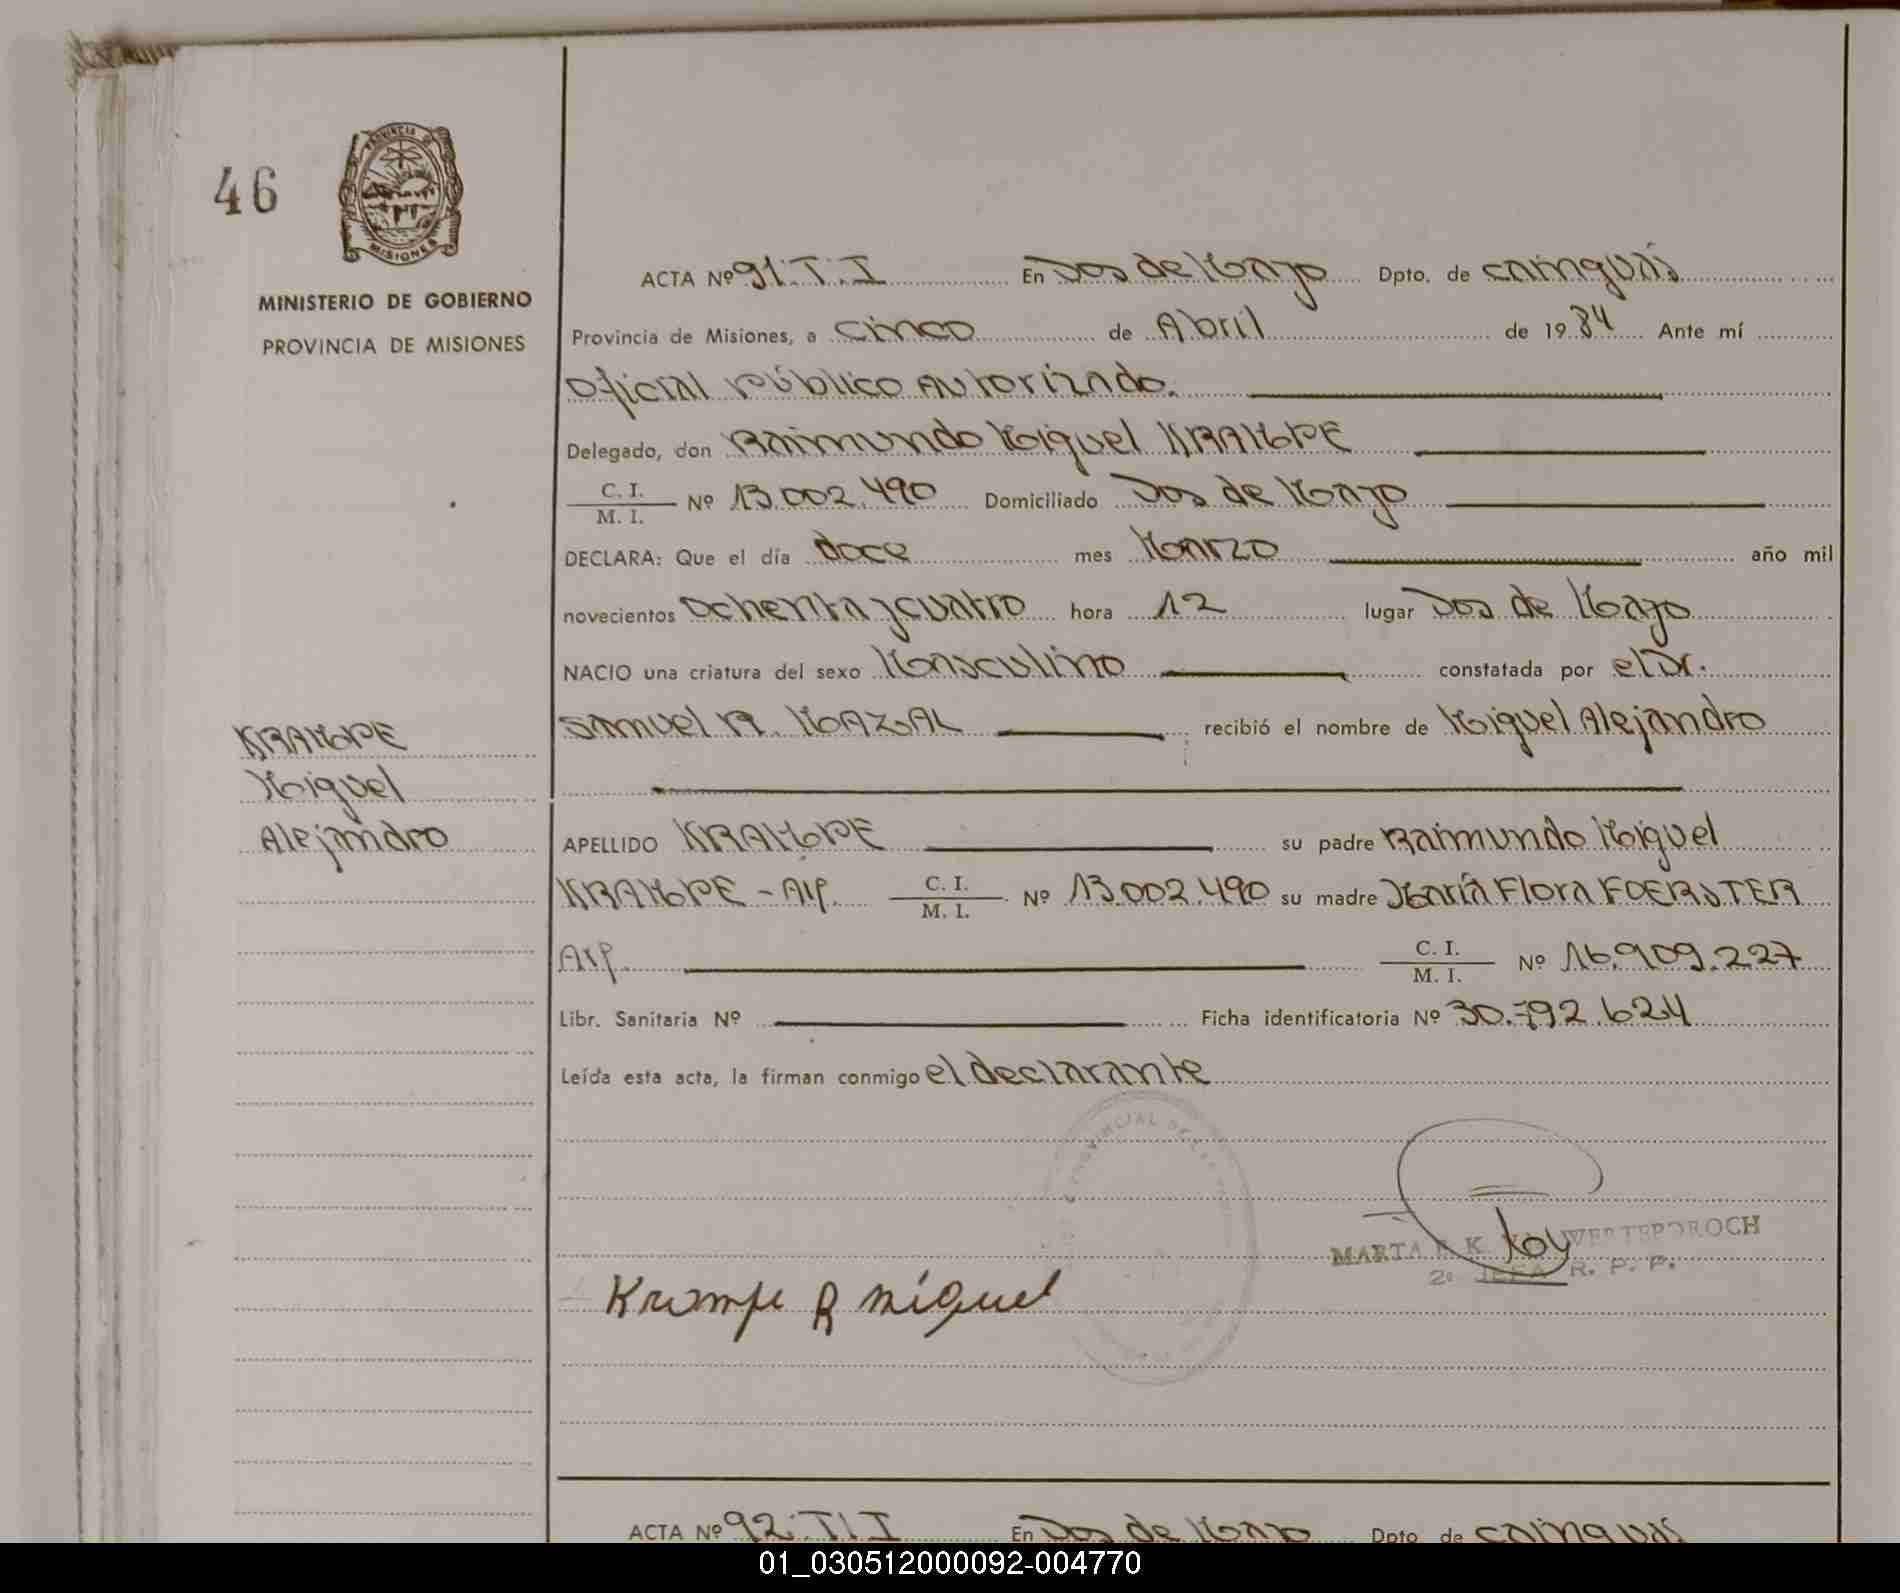 46
PROVINCIA DE
MISIONES
MINISTERIO DE GOBIERNO
PROVINCIA DE MISIONES
ACTA Nº 91. T. I En Dos de Mayo Dpto. de Cainguás
Provincia de Misiones, a cinco de Abril de 1984 Ante mí
Oficial Público Autorizado.
Delegado, don Raimundo Miguel KRAMPE
C. I.
M. I. Nº 13.002.490 Domiciliado Dos de Mayo
DECLARA: Que el día doce mes Marzo año mil
novecientos ochenta y cuatro hora 12 lugar Dos de Mayo
NACIO una criatura del sexo Masculino constatada por el Dr.
Samuel A. MAZAL recibió el nombre de Miguel Alejandro
KRAMPE
Miguel
Alejandro
APELLIDO KRAMPE su padre Raimundo Miguel
KRAMPE - Arg. C. I.
M. I. Nº 13.002.490 su madre María Flora FOERSTER
Arg. C. I.
M. I. Nº 16.909.227
Libr. Sanitaria Nº Ficha identificatoria Nº 30.792.624
Leída esta acta, la firman conmigo el declarante
MARTA K.
2º JEFA R. P. P.
Krampe R Miguel
ACTA Nº 92. T. I En Dos de Mayo Dpto de Cainguás
01_030512000092-004770